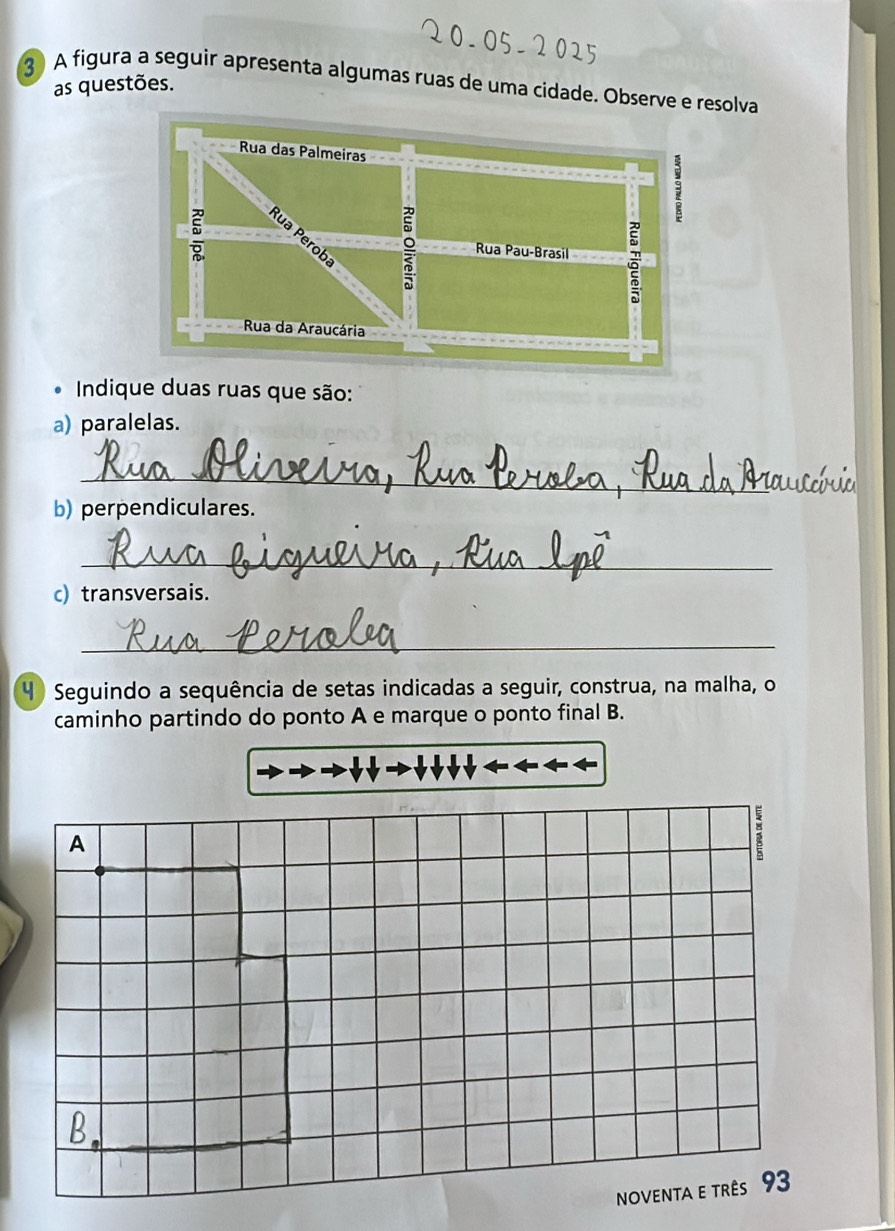 20-05-2025
3 A figura a seguir apresenta algumas ruas de uma cidade. Observe e resolva
as questões.
Rua das Palmeiras
Rua Ipê
Rua Peroba
Rua Oliveira
Rua Pau-Brasil
Rua Figueira
Rua da Araucária
PEDRO PAULO MELARA
• Indique duas ruas que são:
a) paralelas.
Rua Oliveira, Rua Peroba, Rua da Araucária
b) perpendiculares.
Rua Figueira, Rua Ipê
c) transversais.
Rua Peroba
4 Seguindo a sequência de setas indicadas a seguir, construa, na malha, o
caminho partindo do ponto A e marque o ponto final B.
→→→↓↓→↓↓↓↓←←←←
A
EDITORIA DE ARTE
B
NOVENTA E TRÊS 93